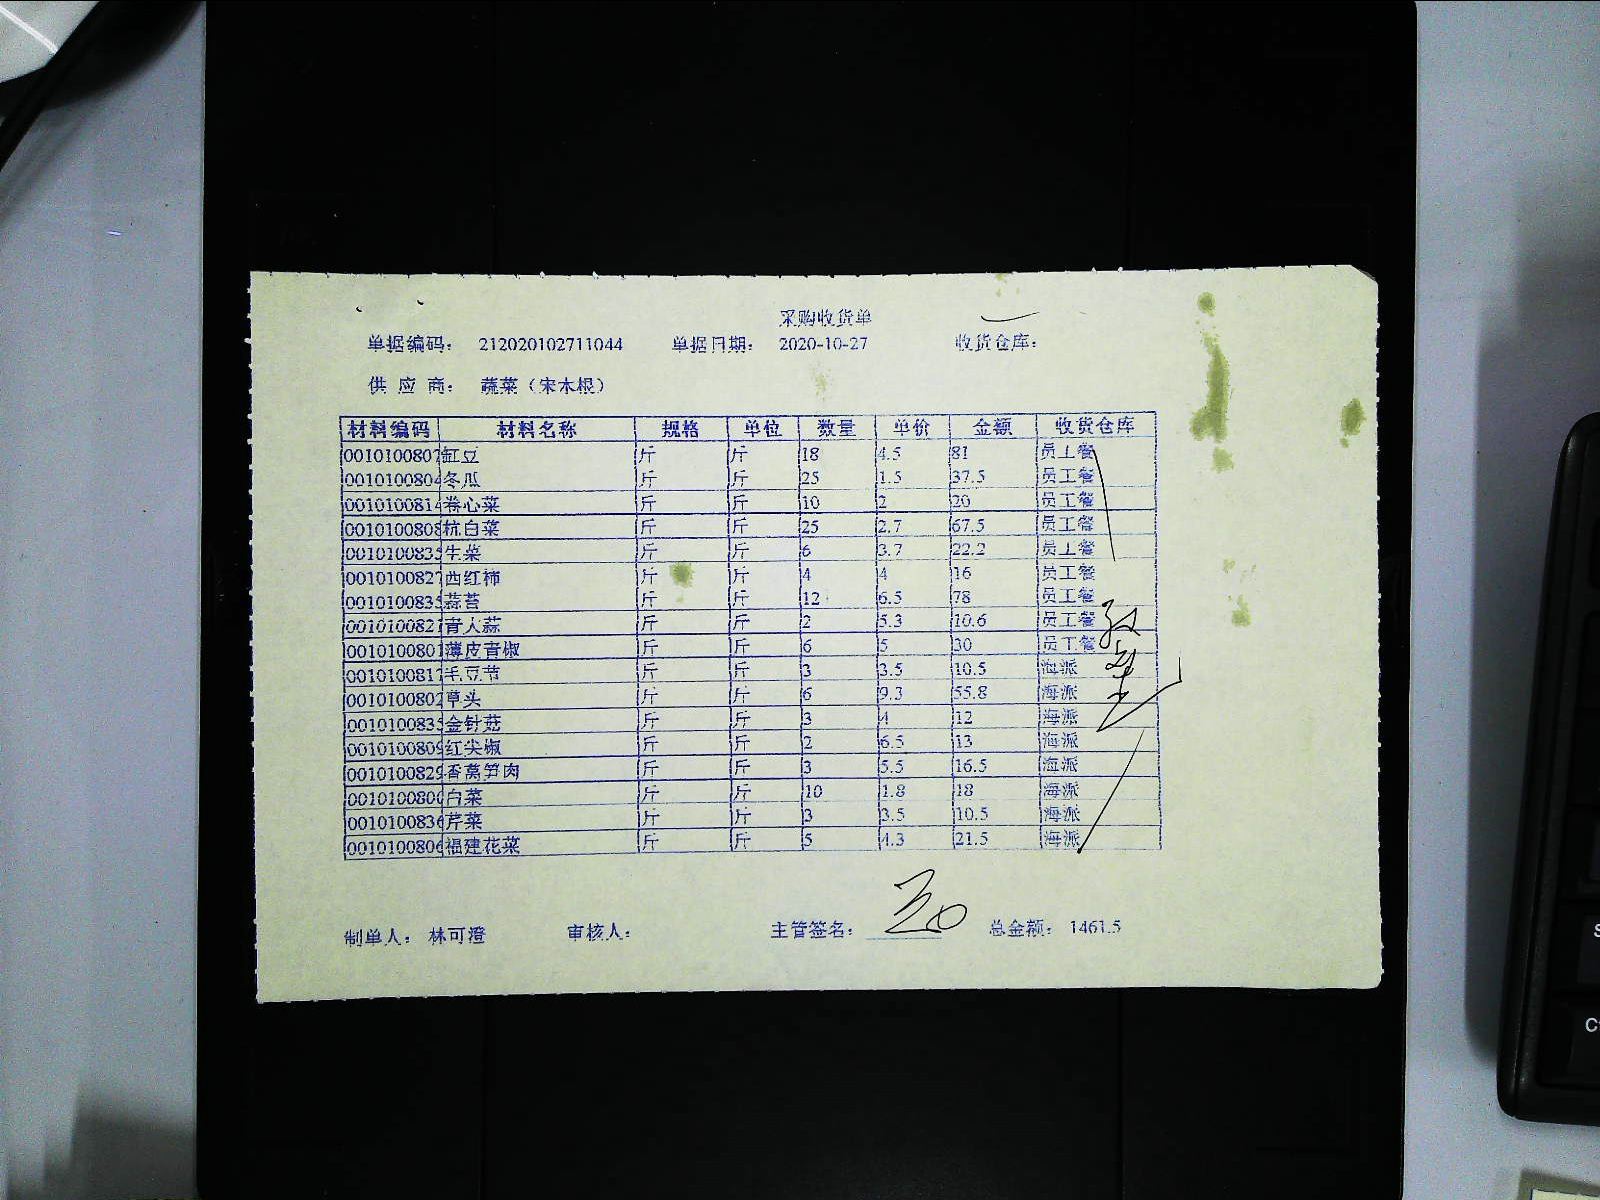 采购收货单
单据编码： 212020102711044 单据日期： 2020-10-27 收货仓库：
供 应 商： 蔬菜（宋木根）
材料编码 材料名称 规格 单位 数量 单价 金额 收货仓库
0010100807 豇豆 斤 斤 18 4.5 81 员工餐
0010100804 冬瓜 斤 斤 25 1.5 37.5 员工餐
0010100814 卷心菜 斤 斤 10 2 20 员工餐
0010100808 杭白菜 斤 斤 25 2.7 67.5 员工餐
0010100835 生菜 斤 斤 6 3.7 22.2 员工餐
0010100827 西红柿 斤 斤 4 4 16 员工餐
0010100835 蒜苔 斤 斤 12 6.5 78 员工餐
0010100821 青大蒜 斤 斤 2 5.3 10.6 员工餐
0010100801 薄皮青椒 斤 斤 6 5 30 员工餐
0010100817 毛豆节 斤 斤 3 3.5 10.5 海派
0010100802 草头 斤 斤 6 9.3 55.8 海派
0010100835 金针菇 斤 斤 3 4 12 海派
0010100809 红尖椒 斤 斤 2 6.5 13 海派
0010100829 香莴笋肉 斤 斤 3 5.5 16.5 海派
0010100800 白菜 斤 斤 10 1.8 18 海派
0010100836 芹菜 斤 斤 3 3.5 10.5 海派
0010100806 福建花菜 斤 斤 5 4.3 21.5 海派
制单人： 林可澄 审核人： 主管签名： 总金额： 1461.5